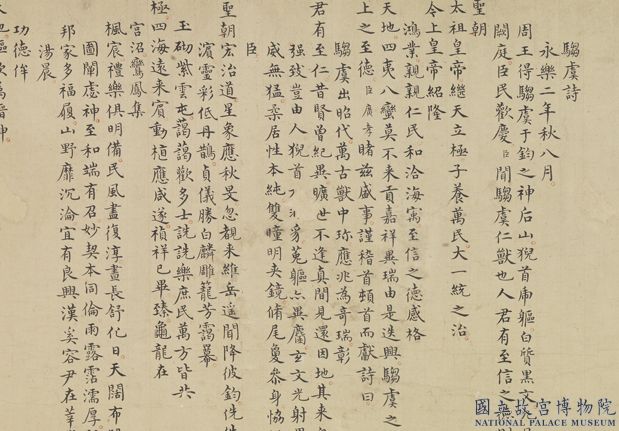 騶虞詩
永樂二年秋八月
周王得騶虞于鈞之神后山猊首虎軀白質黑文
闕庭臣民歡慶臣聞騶虞仁獸也人君有至信之
聖朝
太祖皇帝繼天立極子養萬民大一統之治
今上皇帝紹隆
鴻業親親仁民和洽海寓至信之德感格
天地四夷八蠻莫不來貢嘉祥異瑞由是迭興騶虞之
上之至德臣廣孝睹茲盛事謹稽首頓首而獻詩曰
騶虞出昭代萬古獸中珍應兆為奇瑞彰
君有至仁昔賢曾紀異曠世不逢真間見還因地其來
强致豈由人猊首 菟軀亦異麕玄文光射
威無猛柔居性本純雙瞳明夾鏡脩尾敻參身協
臣
聖朝宏治道星象應秋旻忽覩来維岳遥聞降彼鈞侁侁
濱靈彩低丹鵲貞儀勝白麟雕籠芳靄幕
玉砌紫雲屯藹藹歡多士詵詵樂庶民萬方皆共
極四海遠来賓動植應咸遂禎祥已畢臻龜龍在
宫沼鸞鳳集
楓宸禮樂俱明備民風盡復淳晝長舒化日天闊布
圖闡虙神至和端有召妙契本同倫雨露霑濡厚
邦家多福履山野靡沉淪宜有良興漢奚容尹在莘
湯晨
功德侔
國立故宮博物院
NATIONAL PALACE MUSEUM